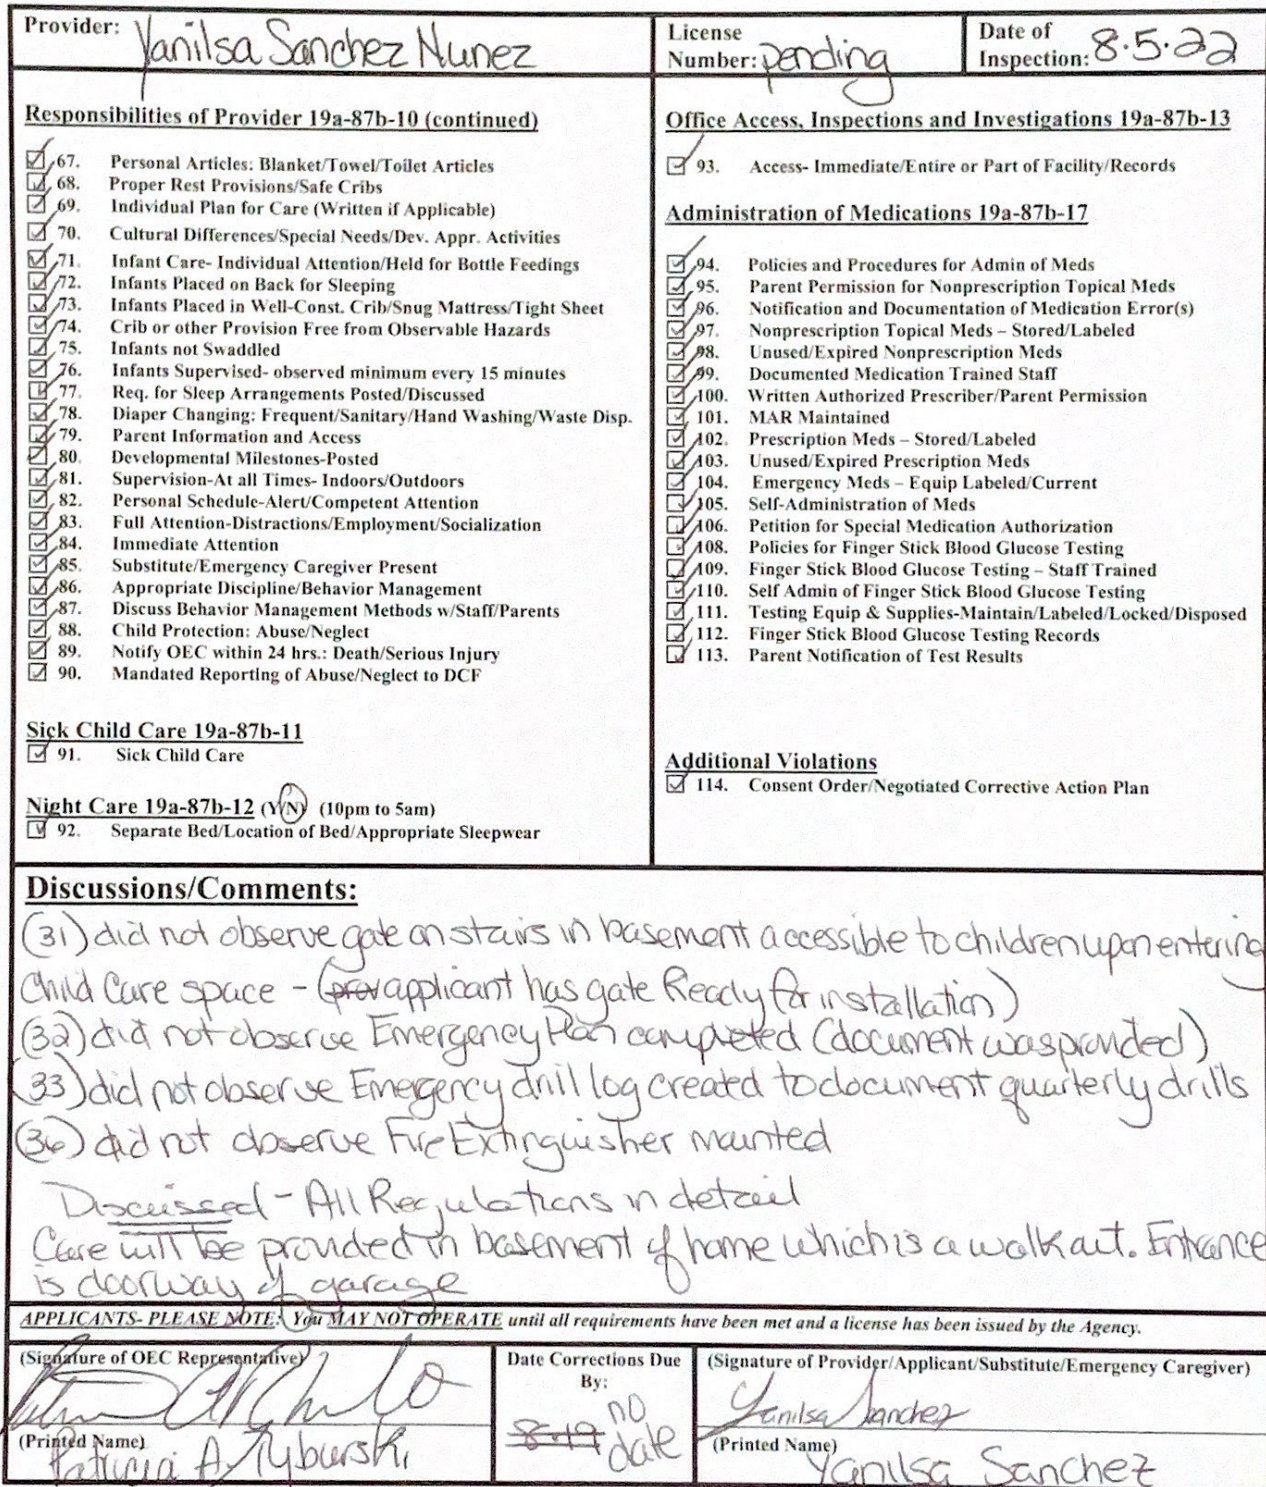 Provider: Yanilsa Sanchez Nunez
License Number: pending
Date of Inspection: 8.5.22
Responsibilities of Provider 19a-87b-10 (continued)
67. Personal Articles: Blanket/Towel/Toilet Articles
68. Proper Rest Provisions/Safe Cribs
69. Individual Plan for Care (Written if Applicable)
70. Cultural Differences/Special Needs/Dev. Appr. Activities
71. Infant Care- Individual Attention/Held for Bottle Feedings
72. Infants Placed on Back for Sleeping
73. Infants Placed in Well-Const. Crib/Snug Mattress/Tight Sheet
74. Crib or other Provision Free from Observable Hazards
75. Infants not Swaddled
76. Infants Supervised- observed minimum every 15 minutes
77. Req. for Sleep Arrangements Posted/Discussed
78. Diaper Changing: Frequent/Sanitary/Hand Washing/Waste Disp.
79. Parent Information and Access
80. Developmental Milestones-Posted
81. Supervision-At all Times- Indoors/Outdoors
82. Personal Schedule-Alert/Competent Attention
83. Full Attention-Distractions/Employment/Socialization
84. Immediate Attention
85. Substitute/Emergency Caregiver Present
86. Appropriate Discipline/Behavior Management
87. Discuss Behavior Management Methods w/Staff/Parents
88. Child Protection: Abuse/Neglect
89. Notify OEC within 24 hrs.: Death/Serious Injury
90. Mandated Reporting of Abuse/Neglect to DCF
Sick Child Care 19a-87b-11
91. Sick Child Care
Night Care 19a-87b-12 (Y/N) (10pm to 5am)
92. Separate Bed/Location of Bed/Appropriate Sleepwear
Office Access, Inspections and Investigations 19a-87b-13
93. Access- Immediate/Entire or Part of Facility/Records
Administration of Medications 19a-87b-17
94. Policies and Procedures for Admin of Meds
95. Parent Permission for Nonprescription Topical Meds
96. Notification and Documentation of Medication Error(s)
97. Nonprescription Topical Meds – Stored/Labeled
98. Unused/Expired Nonprescription Meds
99. Documented Medication Trained Staff
100. Written Authorized Prescriber/Parent Permission
101. MAR Maintained
102. Prescription Meds – Stored/Labeled
103. Unused/Expired Prescription Meds
104. Emergency Meds – Equip Labeled/Current
105. Self-Administration of Meds
106. Petition for Special Medication Authorization
108. Policies for Finger Stick Blood Glucose Testing
109. Finger Stick Blood Glucose Testing – Staff Trained
110. Self Admin of Finger Stick Blood Glucose Testing
111. Testing Equip & Supplies-Maintain/Labeled/Locked/Disposed
112. Finger Stick Blood Glucose Testing Records
113. Parent Notification of Test Results
Additional Violations
114. Consent Order/Negotiated Corrective Action Plan
Discussions/Comments:
(31) did not observe gate on stairs in basement accessible to children upon entering
Child Care space - (prov applicant has gate Ready for installation)
(32) did not observe Emergency Plan completed (document was provided)
(33) did not observe Emergency drill log created to document quarterly drills
(36) did not observe Fire Extinguisher mounted
Discussed - All Regulations in detail
Care will be provided in basement of home which is a walk out. Entrance
is doorway of garage
APPLICANTS- PLEASE NOTE: You MAY NOT OPERATE until all requirements have been met and a license has been issued by the Agency.
(Signature of OEC Representative)
(Printed Name)
Patricia A. Tyburski
Date Corrections Due
By:
8-19 no
date
(Signature of Provider/Applicant/Substitute/Emergency Caregiver)
Yanilsa Sanchez
(Printed Name)
Yanilsa Sanchez